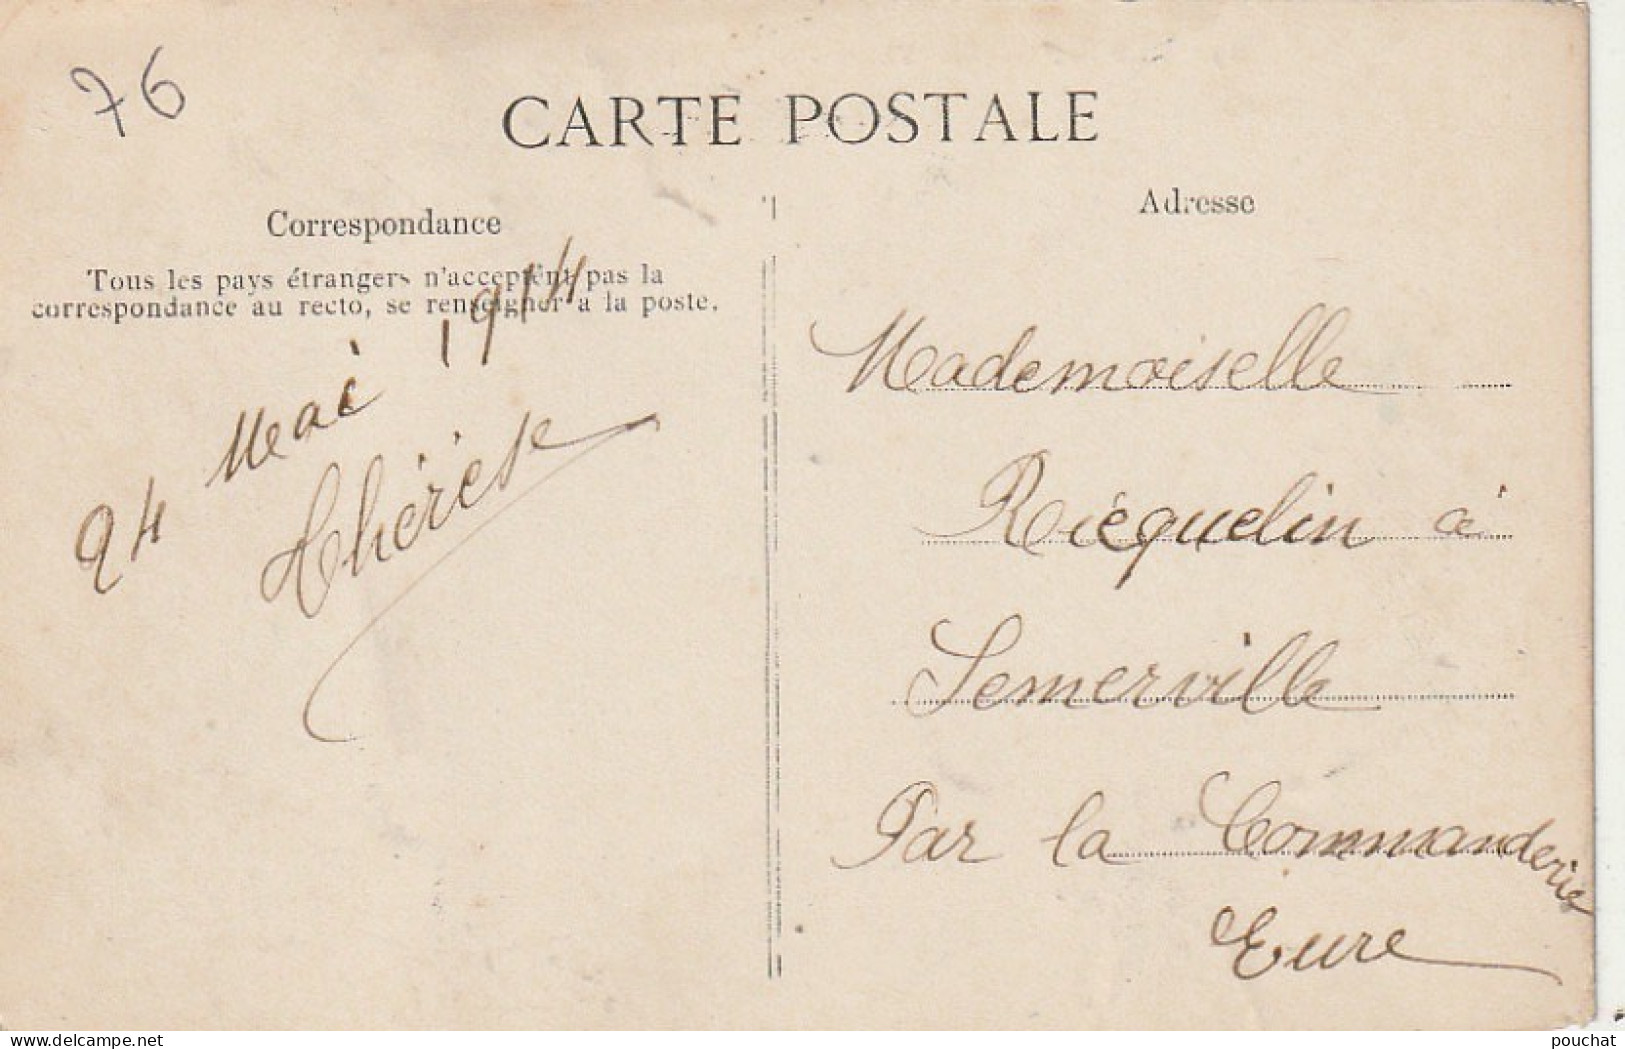 76
CARTE POSTALE
Correspondance
Tous les pays étrangers n'acceptent pas la
correspondance au recto, se renseigner a la poste.
24 Mai 1914
Thérèse
Adresse
Mademoiselle
Riéquelin à
Semerville
Par la Commanderie
Eure
www.delcampe.net
pouchat